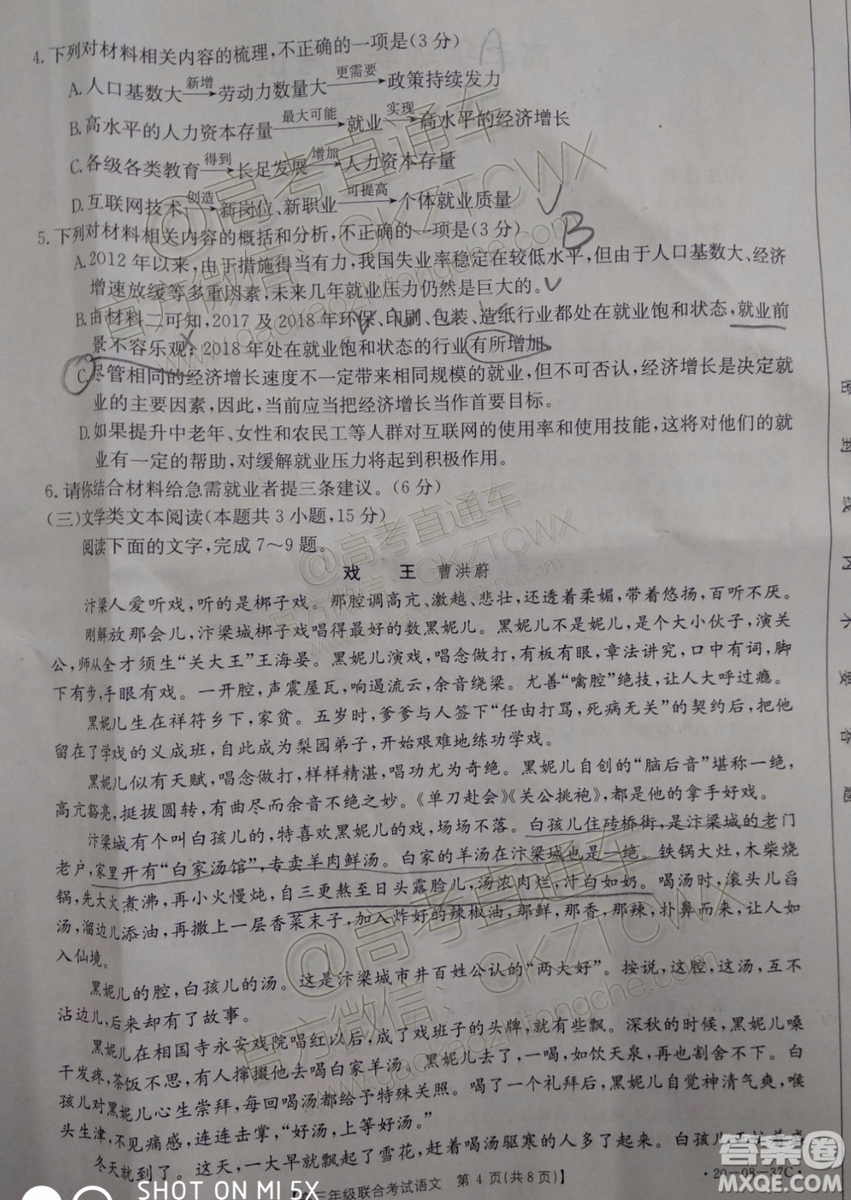 4.下列对材料相关内容的梳理,不正确的一项是(3分)
A.人口基数大 新增→ 劳动力数量大 更需要→ 政策持续发力
B.高水平的人力资本存量 最大可能→ 就业 实现→ 高水平的经济增长
C.各级各类教育 得到→ 长足发展 增加→ 人力资本存量
D.互联网技术 创造→ 新岗位、新职业 可提高→ 个体就业质量
5.下列对材料相关内容的概括和分析,不正确的一项是(3分)
B
A.2012年以来,由于措施得当有力,我国失业率稳定在较低水平,但由于人口基数大、经济
增速放缓等多重因素,未来几年就业压力仍然是巨大的。
B.由材料二可知,2017及2018年环保、印刷、包装、造纸行业都处在就业饱和状态,就业前
景不容乐观;2018年处在就业饱和状态的行业有所增加。
C.尽管相同的经济增长速度不一定带来相同规模的就业,但不可否认,经济增长是决定就
业的主要因素,因此,当前应当把经济增长当作首要目标。
D.如果提升中老年、女性和农民工等人群对互联网的使用率和使用技能,这将对他们的就
业有一定的帮助,对缓解就业压力将起到积极作用。
6.请你结合材料给急需就业者提三条建议。(6分)
(三)文学类文本阅读(本题共3小题,15分)
阅读下面的文字,完成7～9题。
戏 王 曹洪蔚
汴梁人爱听戏,听的是梆子戏。那腔调高亢、激越、悲壮,还透着柔媚,带着悠扬,百听不厌。
刚解放那会儿,汴梁城梆子戏唱得最好的数黑妮儿。黑妮儿不是妮儿,是个大小伙子,演关
公,师从全才须生“关大王”王海晏。黑妮儿演戏,唱念做打,有板有眼,章法讲究,口中有词,脚
下有步,手眼有戏。一开腔,声震屋瓦,响遏流云,余音绕梁。尤善“噙腔”绝技,让人大呼过瘾。
黑妮儿生在祥符乡下,家贫。五岁时,爹爹与人签下“任由打骂,死病无关”的契约后,把他
留在了学戏的义成班,自此成为梨园弟子,开始艰难地练功学戏。
黑妮儿似有天赋,唱念做打,样样精湛,唱功尤为奇绝。黑妮儿自创的“脑后音”堪称一绝,
高亢豁亮,挺拔圆转,有曲尽而余音不绝之妙。《单刀赴会》《关公挑袍》,都是他的拿手好戏。
汴梁城有个叫白孩儿的,特喜欢黑妮儿的戏,场场不落。白孩儿住砖桥街,是汴梁城的老门
老户,家里开有“白家汤馆”,专卖羊肉鲜汤。白家的羊汤在汴梁城也是一绝。铁锅大灶,木柴烧
锅,先大火煮沸,再小火慢炖,自三更熬至日头露脸儿,汤浓肉烂,汁白如奶。喝汤时,滚头儿舀
汤,溜边儿添油,再撒上一层香菜末子,加入炸好的辣椒油,那鲜,那香,那辣,扑鼻而来,让人如
入仙境。
黑妮儿的腔,白孩儿的汤。这是汴梁城市井百姓公认的“两大好”。按说,这腔,这汤,互不
沾边儿,后来却有了故事。
黑妮儿在相国寺永安戏院唱红以后,成了戏班子的头牌,就有些飘。深秋的时候,黑妮儿嗓
干发疼,茶饭不思,有人撺掇他去喝白家羊汤。黑妮儿去了,一喝,如饮天泉,再也离不开了。白
孩儿对黑妮儿心生崇拜,每回喝汤都给予特殊关照。喝了一个礼拜后,黑妮儿自觉神清气爽,喉
头生津,不见痛感,连连击掌,“好汤,上等好汤。”
冬天就到了。这天,一大早就飘起了雪花,赶着喝汤驱寒的人多了起来。白孩儿
三年级联合考试语文 第4页(共8页)】
·20-08-37C·
@高考直通车
官方微信:GKZTCWX
www.gaokaozhitongche.com
@高考直通车
GKZTCWX
@高考直通车
官方微信:GKZTCWX
www.gaokaozhitongche.com
密
封
线
内
不
要
答
题
答案圈
MXQE.COM
SHOT ON MI 5X